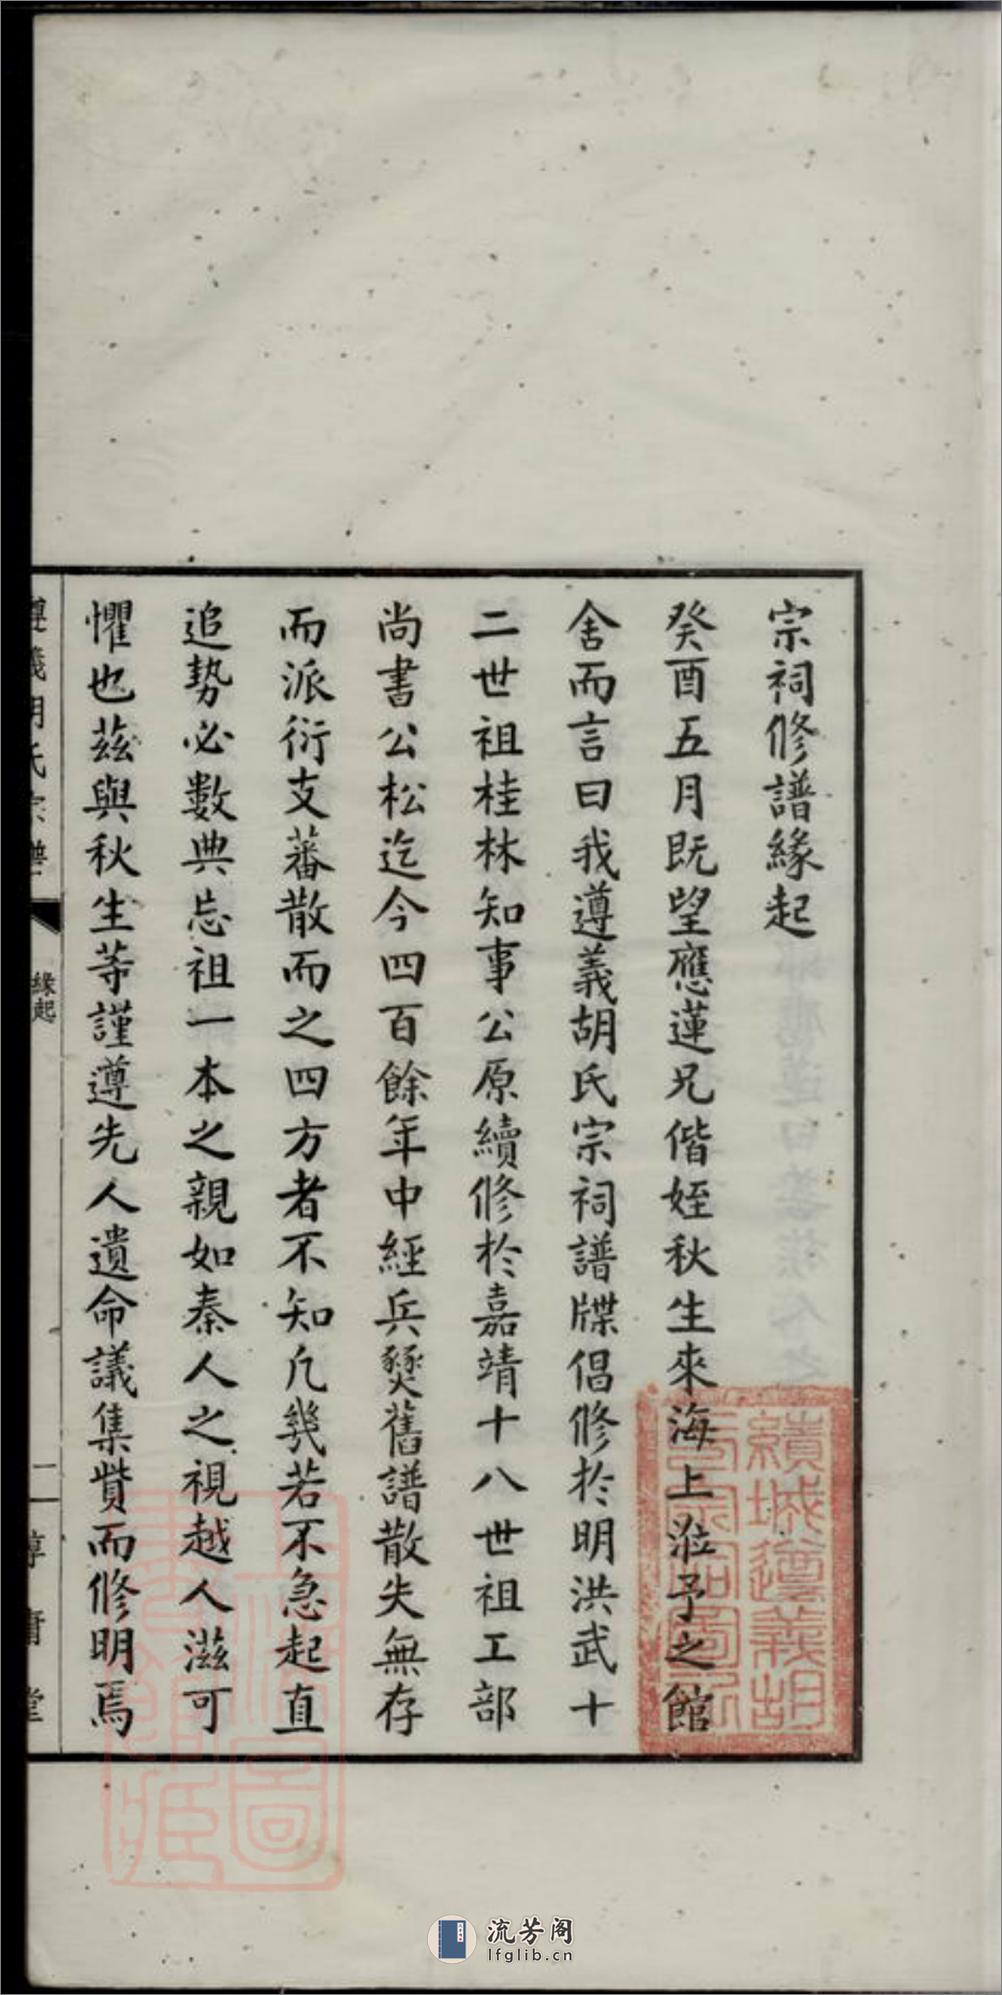 宗祠修譜緣起
癸酉五月既望應蓮兄偕姪秋生來海上涖予之館
舍而言曰我遵義胡氏宗祠譜牒倡修於明洪武十
二世祖桂林知事公原續修於嘉靖十八世祖工部
尚書公松迄今四百餘年中經兵燹舊譜散失無存
而派衍支蕃散而之四方者不知凡幾若不急起直
追勢必數典忘祖一本之親如秦人之視越人滋可
懼也茲與秋生等謹遵先人遺命議集貲而修明焉
遵義胡氏宗譜
緣起
一
惇庸堂
績城遵義胡
氏宗祠圖記
流芳阁
lfglib.cn